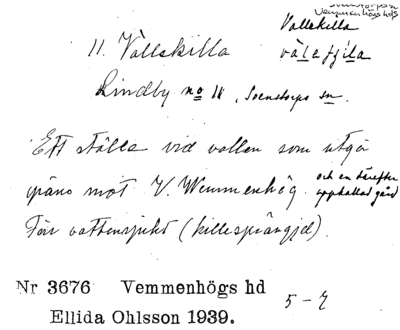 Vemmenhögs hd
Vallskilla
11. Vallskilla
Lindby no 11, Svenstorps sn.
Ett ställe vid vallen som utgör
gräns mot V. Wemmenhög.
och en därefter
uppkallad gård
(källesprångjd).
Nr 3676 Vemmenhögs hd
Ellida Ohlsson 1939.
5-7